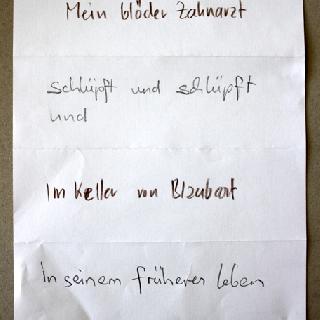 Mein blöder Zahnarzt
schlüpft und schlüpft
und
Im Keller von Blaubart
In seinem früheren Leben